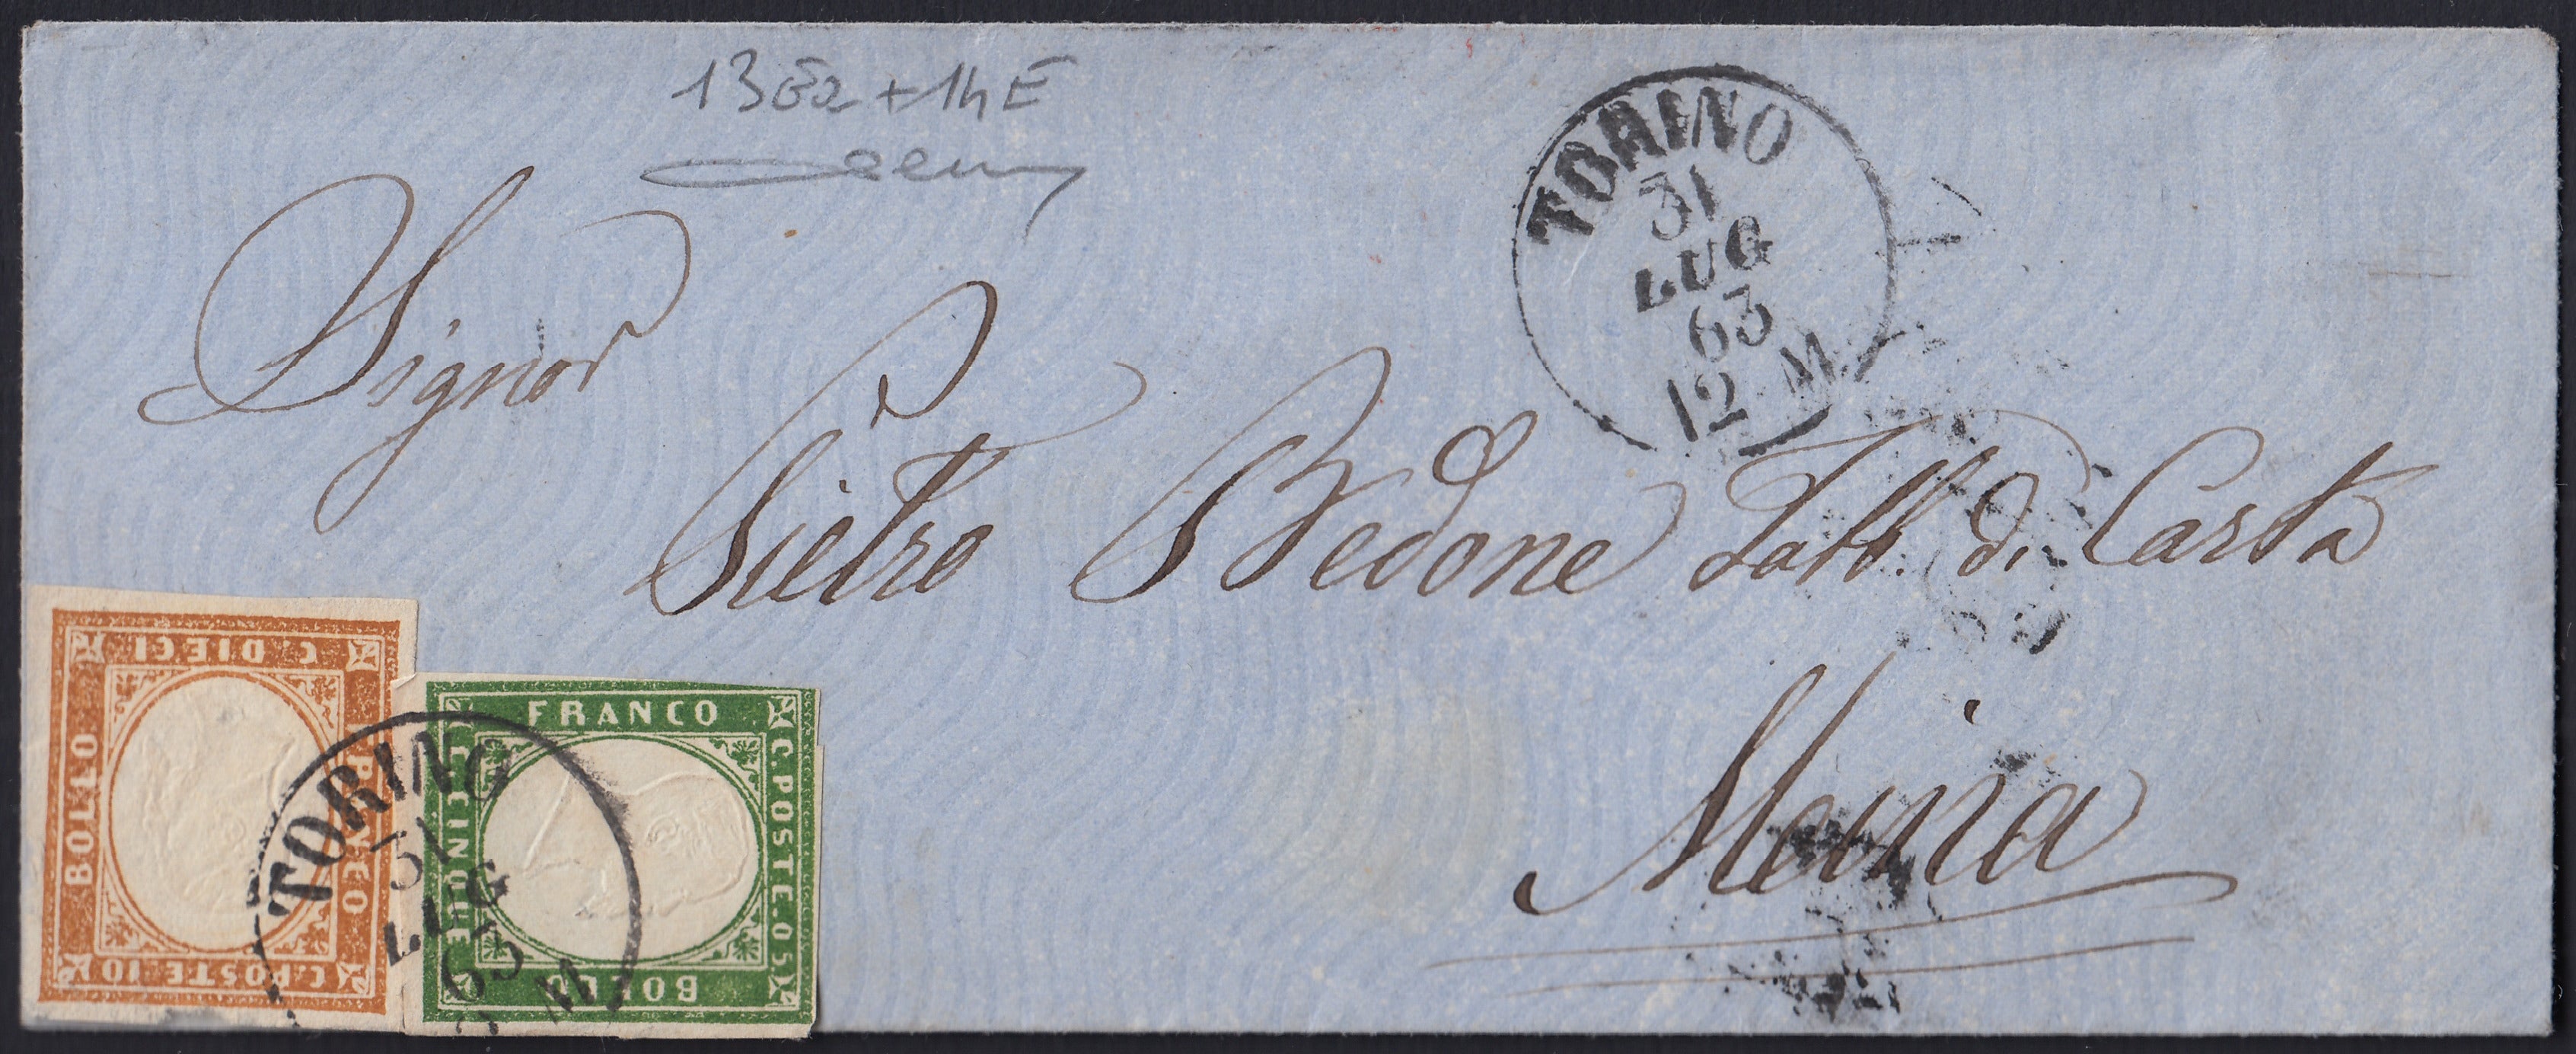 13Ea + 14E
TORINO
31
LUG
63
12 M
Signor
Pietro Bedone Fabb. di Carta
Meina
C. DIECI
BOLLO
FRANCO
C. POSTE 10
TORINO
31
LUG
63
M
FRANCO
C. CINQUE
C. POSTE. 05
BOLLO